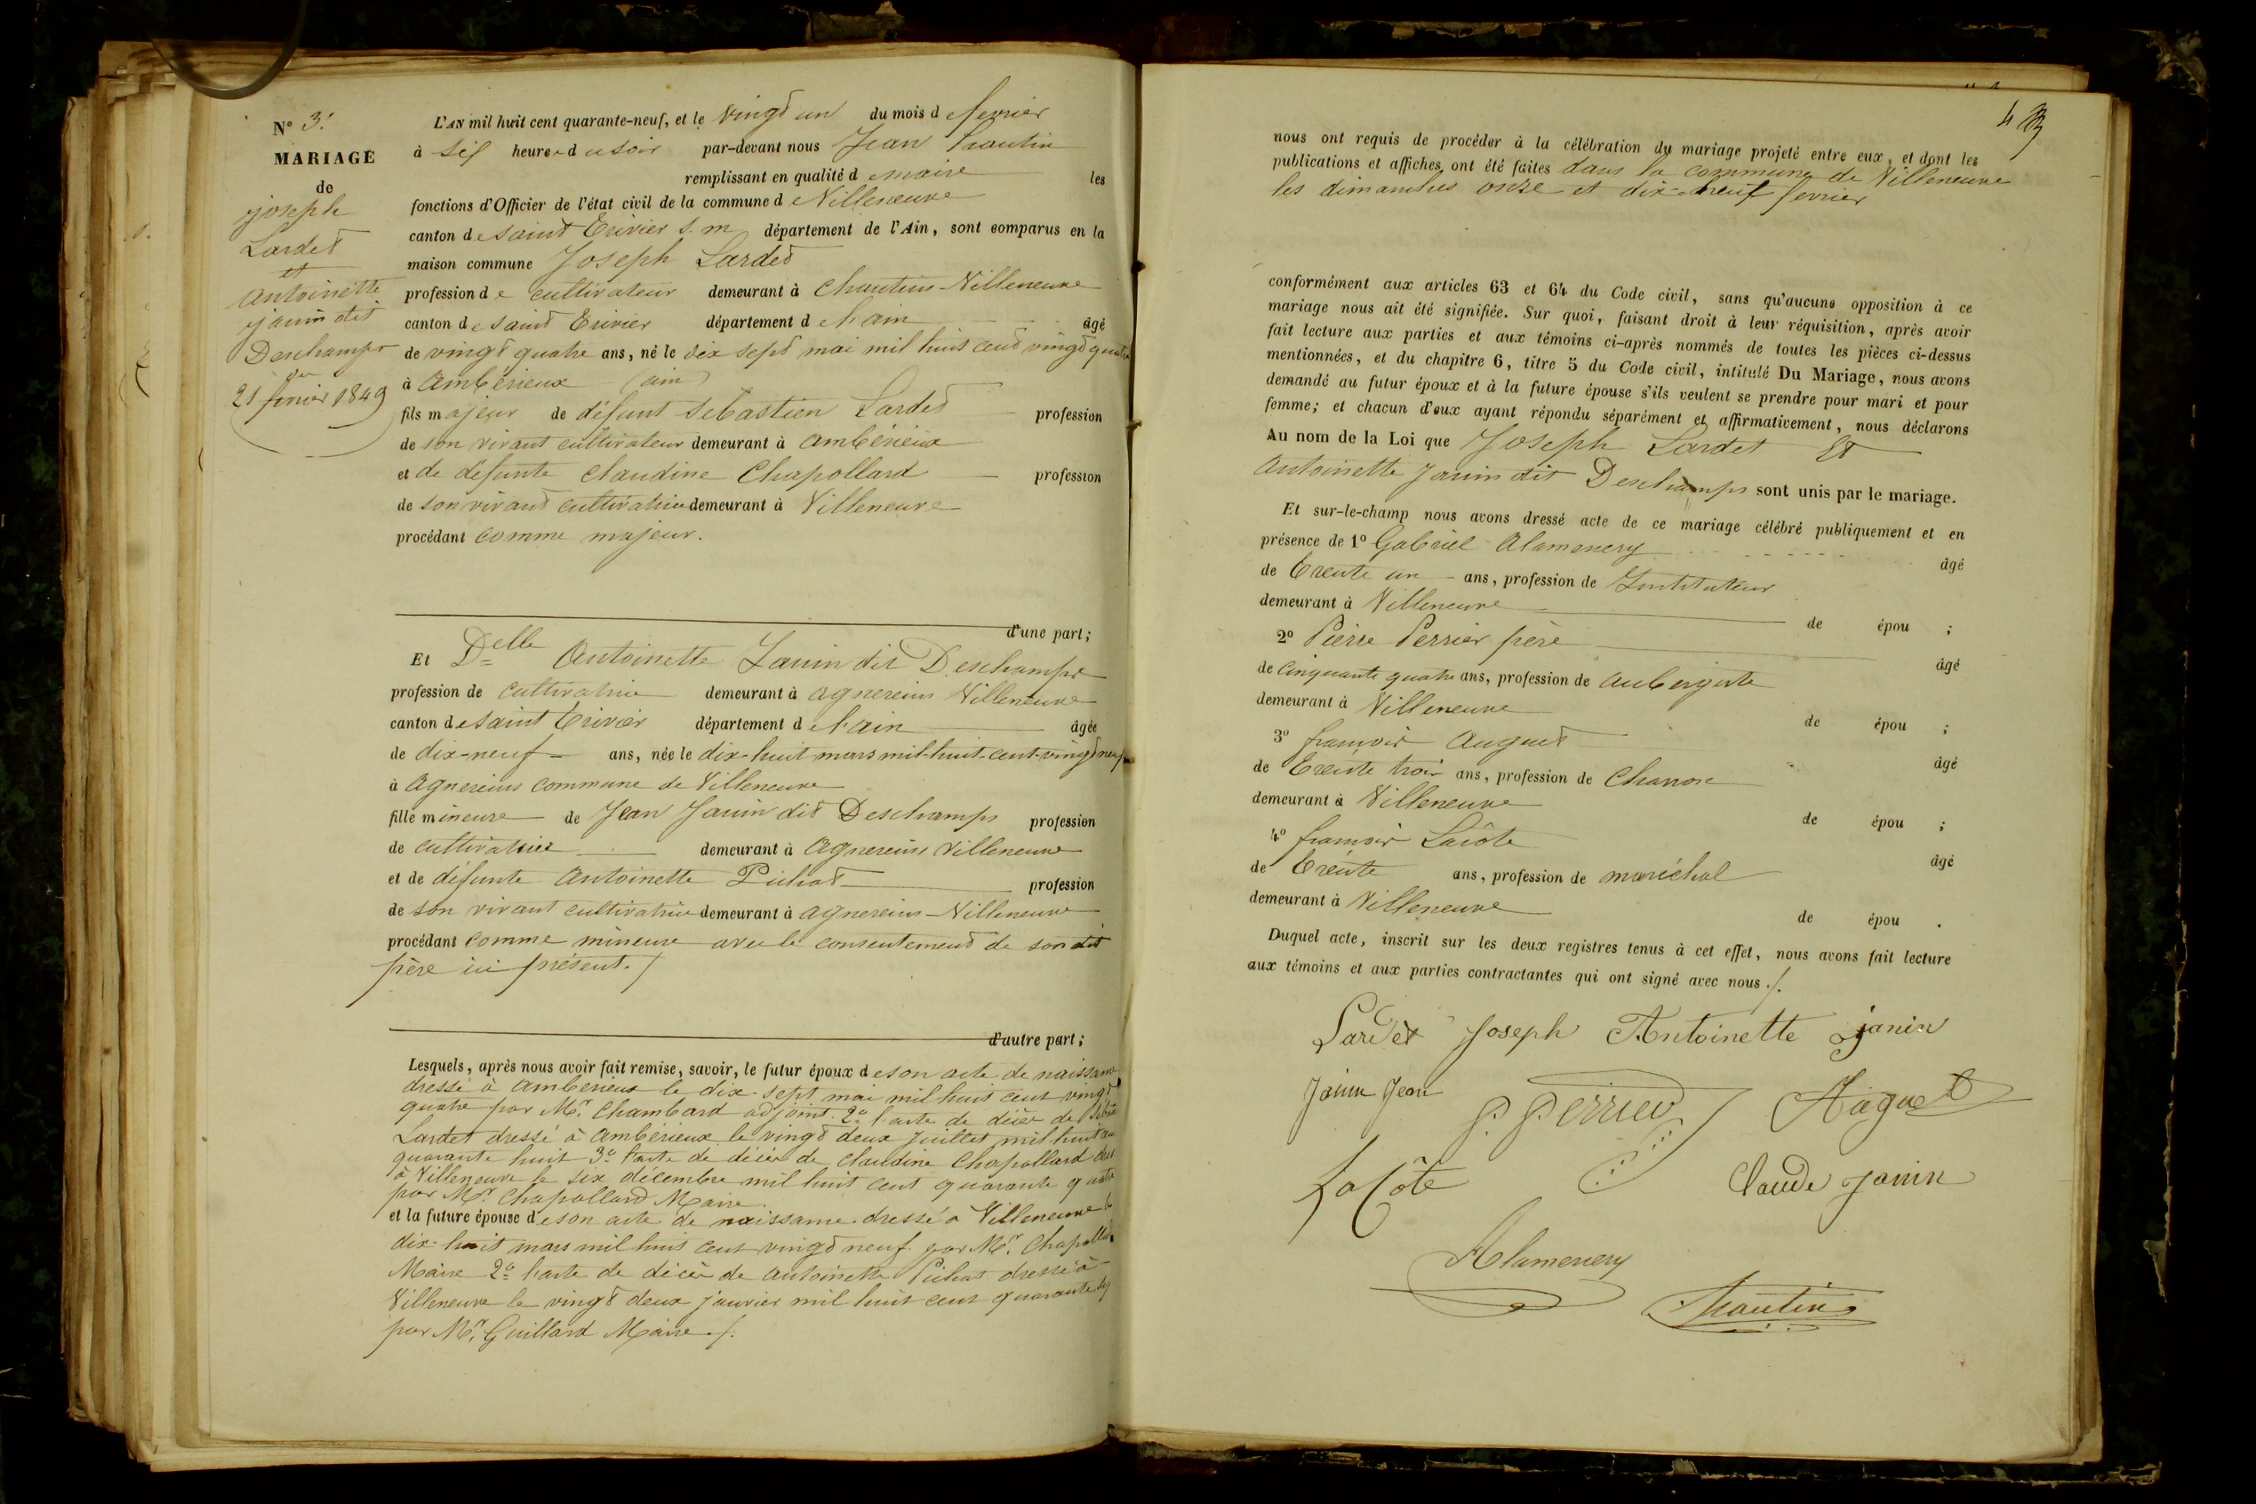 N° 3.
MARIAGE
de
joseph
Lardet
et
antoinette
janin dit
Deschamps
du
21 fevrier 1849
L'AN mil huit cent quarante-neuf, et le vingt un du mois de fevrier
à six heures du soir par-devant nous Jean
remplissant en qualité de maire les
fonctions d'Officier de l'état civil de la commune de Villeneuve
canton de saint Trivier s. m. département de l'Ain, sont comparus en la
maison commune Joseph Lardet
profession de cultivateur demeurant à Chanteins Villeneuve
canton de saint Trivier département de l'ain âgé
de vingt quatre ans, né le dix sept mai mil huit cent vingt quatre
à Ambérieux (ain)
fils majeur de défunt Sébastien Lardet profession
de son vivant cultivateur demeurant à ambérieux
et de défunte Claudine Chapollard profession
de son vivant cultivatrice demeurant à Villeneuve
procédant comme majeur.
d'une part;
Et Delle Antoinette Janin dit Deschamps
profession de cultivatrice demeurant à agnereins Villeneuve
canton de saint Trivier département de l'ain âgée
de dix-neuf ans, née le dix-huit mars mil-huit-cent-vingt neuf
à agnereins commune de Villeneuve
fille mineure de Jean Janin dit Deschamps profession
de cultivateur demeurant à agnereins Villeneuve
et de défunte antoinette Pichat profession
de son vivant cultivatrice demeurant à agnereins-Villeneuve
procédant comme mineure avec le consentement de son dit
père ici présent./
d'autre part;
Lesquels, après nous avoir fait remise, savoir, le futur époux de son acte de naissance
dressé à ambérieux le dix-sept mai mil huit cent vingt
quatre par Mr. Chambard adjoint. 2° l'acte de décès de
Lardet dressé à ambérieux le vingt deux juillet mil huit cent
quarante huit 3° l'acte de décès de Claudine Chapollard
à Villeneuve le six décembre mil huit cent quarante quatre
par Mr. Chapollard Maire.
et la future épouse de son acte de naissance dressé à Villeneuve le
dix-huit mars mil huit cent vingt neuf par Mr. Chapollard
Maire 2° l'acte de décès de antoinette Pichat dressé à
Villeneuve le vingt deux janvier mil huit cent quarante
par Mr. Guillard Maire ./.
43
nous ont requis de procéder à la célébration du mariage projeté entre eux, et dont les
publications et affiches ont été faites dans la commune de Villeneuve
les dimanches onze et dix-neuf fevrier
conformément aux articles 63 et 64 du Code civil, sans qu'aucune opposition à ce
mariage nous ait été signifiée. Sur quoi, faisant droit à leur réquisition, après avoir
fait lecture aux parties et aux témoins ci-après nommés de toutes les pièces ci-dessus
mentionnées, et du chapitre 6, titre 5 du Code civil, intitulé Du Mariage, nous avons
demandé au futur époux et à la future épouse s'ils veulent se prendre pour mari et pour
femme; et chacun d'eux ayant répondu séparément et affirmativement, nous déclarons
Au nom de la Loi que Joseph Lardet Et
antoinette Janin dit Deschamps sont unis par le mariage.
Et sur-le-champ nous avons dressé acte de ce mariage célébré publiquement et en
présence de 1° Gabriel Alamenery âgé
de trente un ans, profession de Instituteur
demeurant à Villeneuve de épou ;
2° Pierre Perrier père âgé
de cinquante quatre ans, profession de aubergiste
demeurant à Villeneuve de épou ;
3° françois Auguet âgé
de trente trois ans, profession de Charron
demeurant à Villeneuve de épou ;
4° françois Lacôte âgé
de trente ans, profession de maréchal
demeurant à Villeneuve de épou .
Duquel acte, inscrit sur les deux registres tenus à cet effet, nous avons fait lecture
aux témoins et aux parties contractantes qui ont signé avec nous ./.
Lardet Joseph Antoinette janin
Janin Jean P. Perrier Aaguet
LaCôte Claude Janin
Alamenery